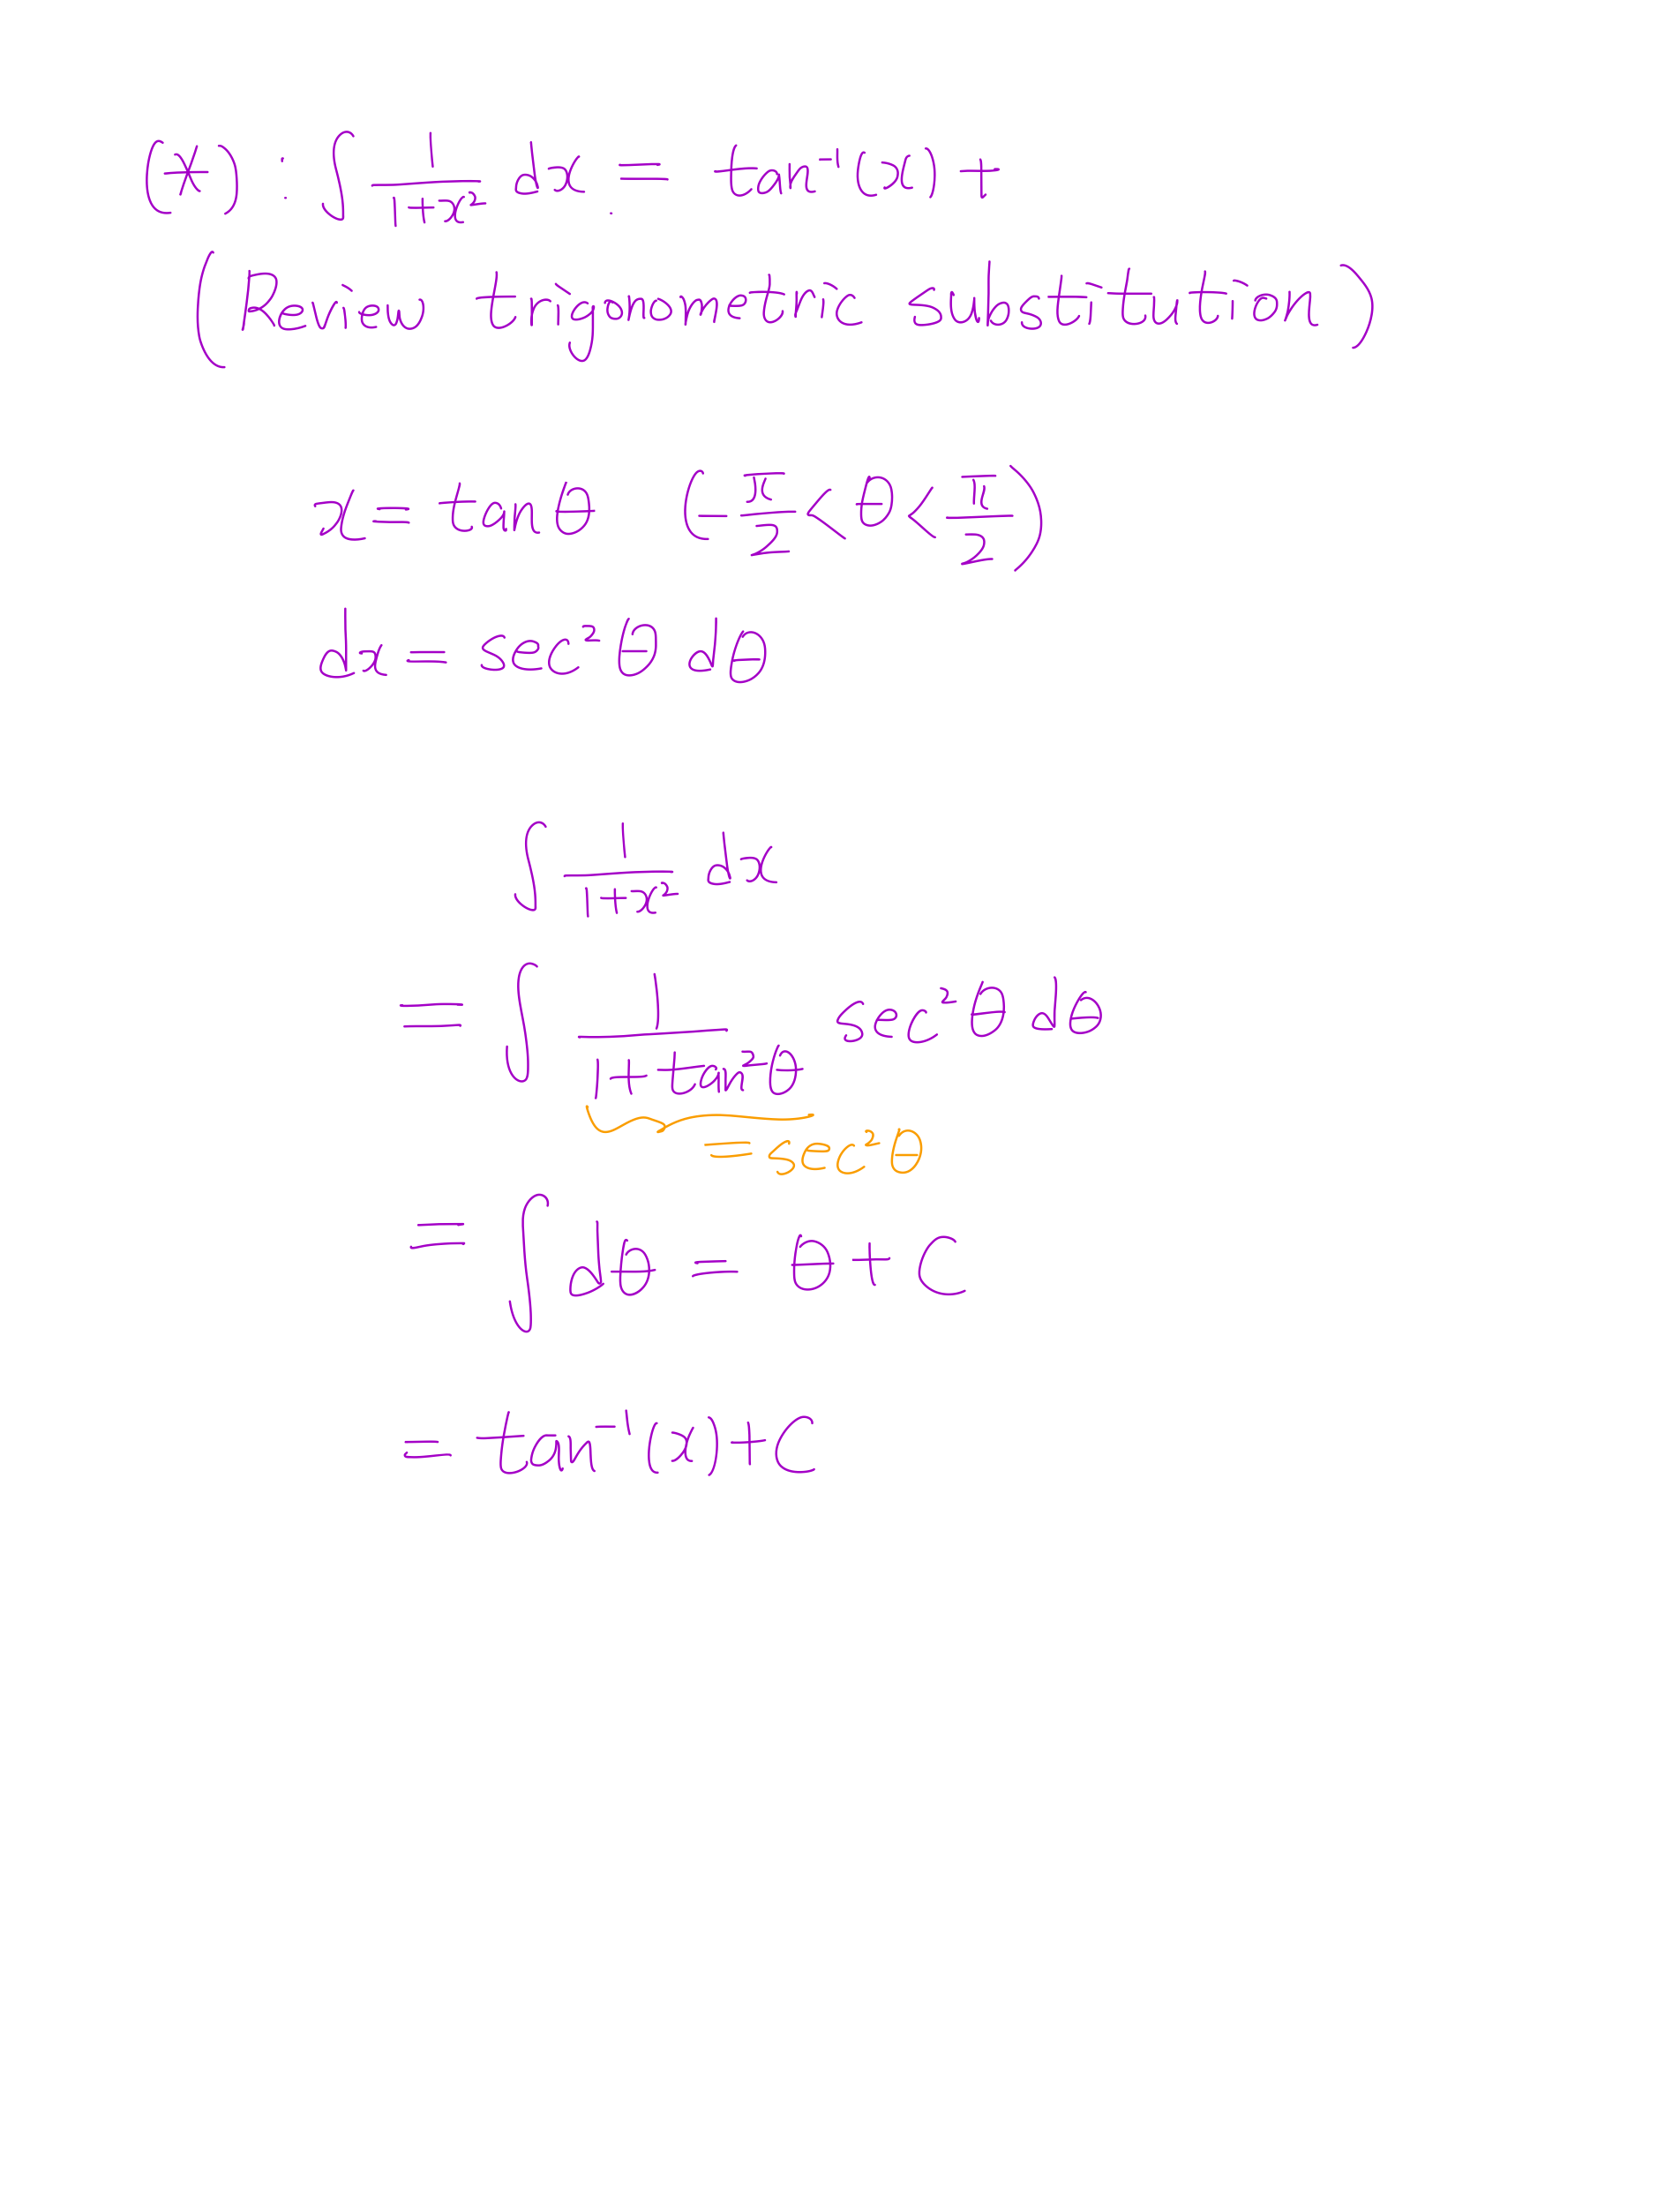 (*) : ∫ 1/(1+x²) dx = tan⁻¹(x) +
(Review trigonometric substitution)
x = tanθ (-π/2 < θ < π/2)
dx = sec²θ dθ
∫ 1/(1+x²) dx
= ∫ 1/(1+tan²θ) sec²θ dθ
= sec²θ
= ∫ dθ = θ + C
= tan⁻¹(x) + C